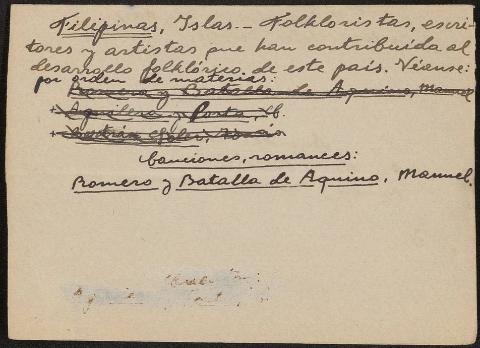 Filipinas, Islas.- Folkloristas, escri-
tores y artistas que han contribuida al
desarrollo folklórico de este país. Véanse:
por orden de materias:
Romero y Batalla de Aquino, Manuel
Aguilera y Porta,
Canciones, romances:
Romero y Batalla de Aquino, Manuel.